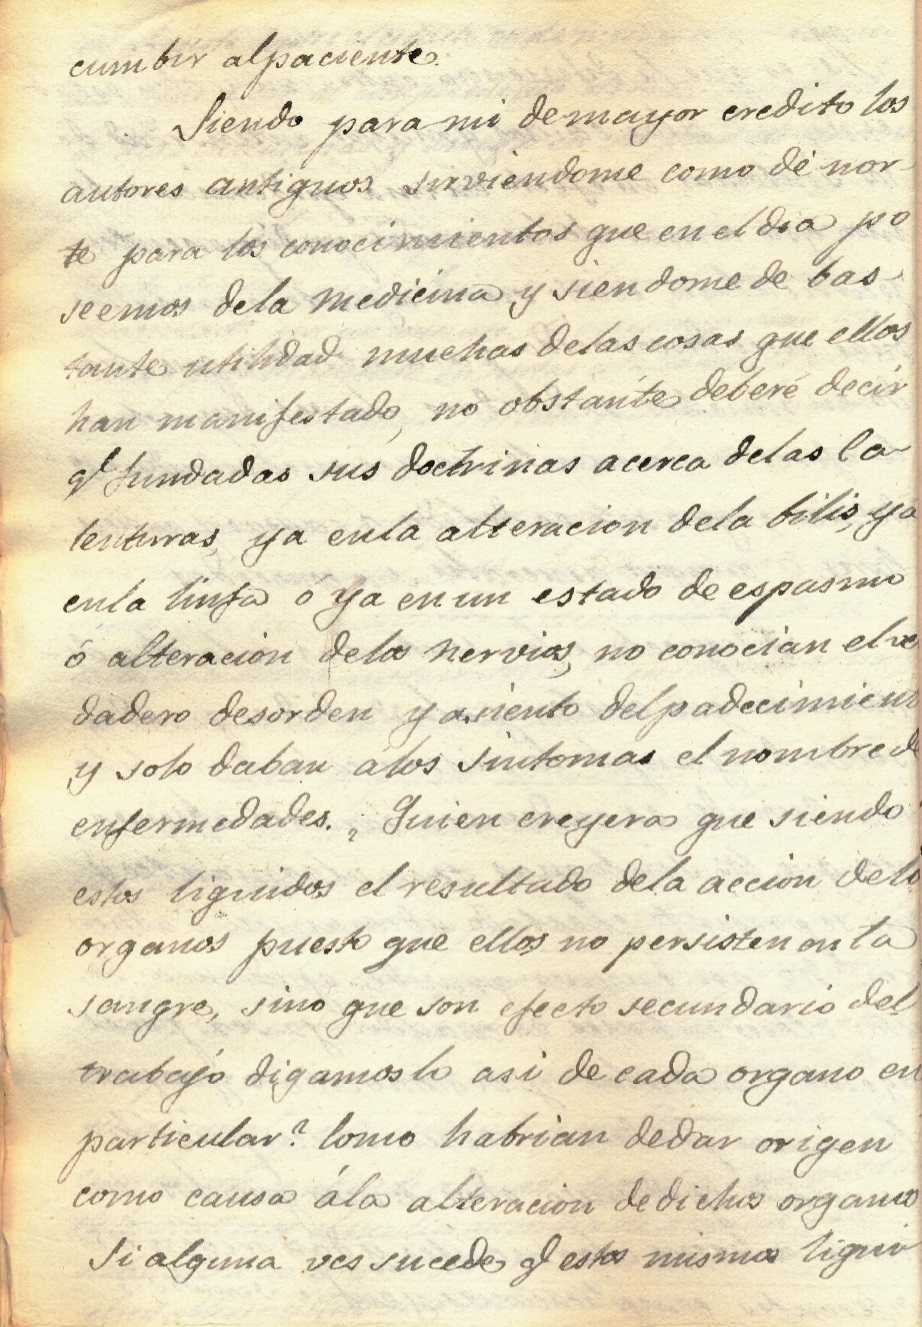 cumbir al paciente.
Siendo para mi de mayor credito los
autores antiguos sirviendome como de nor-
te para los conocimientos que en el dia po
seemos dela medicina y siendome de bas-
tante utilidad muchas delas cosas que ellos
han manifestado, no obstante deberé decir
q.e fundadas sus doctrinas acerca delas Ca-
lenturas, ya enla alteracion dela bilis, ya
enla linfa o ya en un estado de espasmo
ó alteracion delos nervios, no conocian el ve
dadero desorden y asiento del padecimien
y solo daban álos sintomas el nombre de
enfermedades. ¿Quien creyera que siendo
estos liquidos el resultado dela accion delo
organos puesto que ellos no persisten en la
sangre, sino que son efecto secundario del
trabajo digamoslo asi de cada organo en
particular? Como habrian de dar origen
como causa ála alteracion de dichos organos
Si alguna ves sucede q.e estos mismos liqui